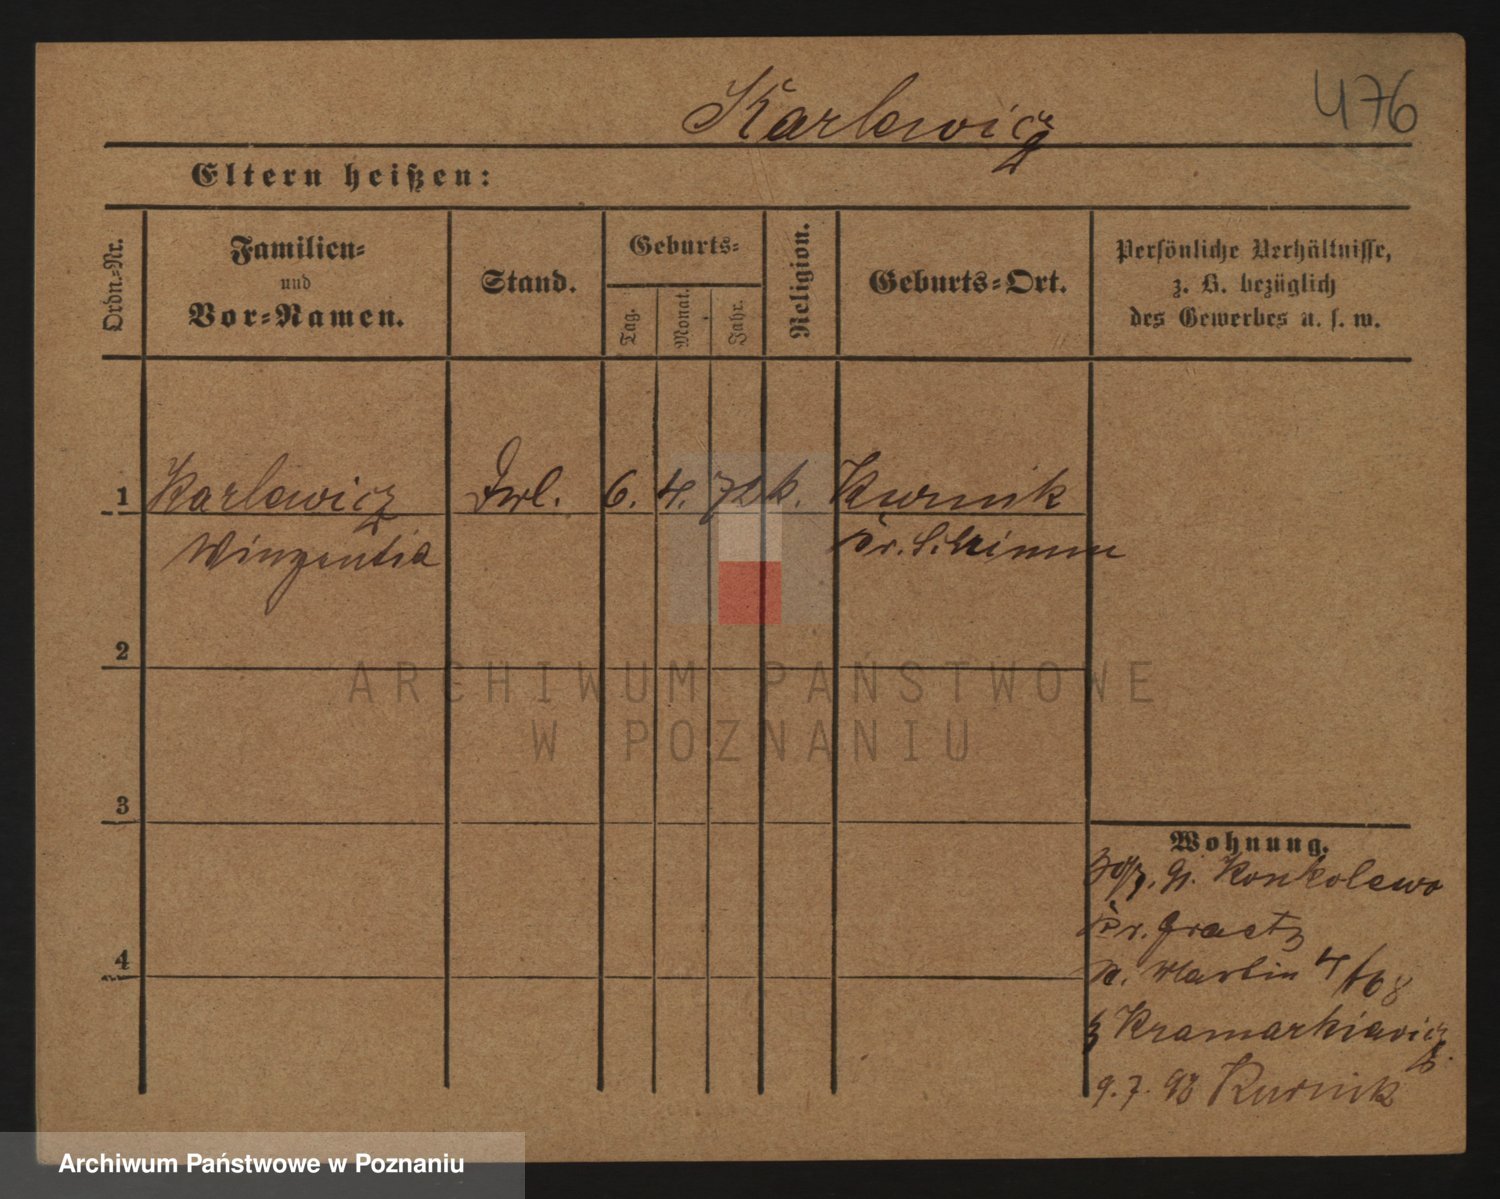 Karlewicz
476
Eltern heißen:
Ordn.-Nr.
Familien-
und
Vor-Namen.
Stand.
Geburts-
Tag.
Monat.
Jahr.
Religion.
Geburts-Ort.
Persönliche Verhältnisse,
z. B. bezüglich
des Gewerbes u. s. w.
1 Karlewicz Frl. 6. 4. 72 k. Kurnik
Winzentia Kr. Schrimm
2
3
4
Wohnung.
Konkolewo
Kr. Graetz
n. Martin 4
z Kramarkiewicz
9. 7. 92 Kurnik
ARCHIWUM PAŃSTWOWE
W POZNANIU
Archiwum Państwowe w Poznaniu